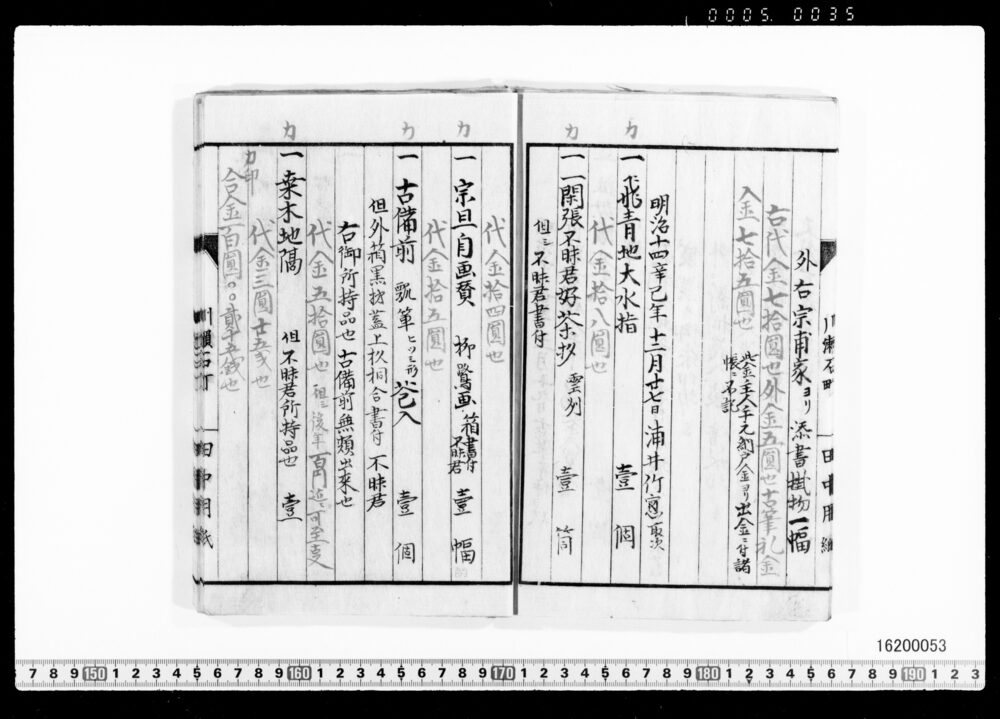 0005. 0035
外右宗甫家ヨリ添書掛物一幅
右代金七拾圓也外金五圓也古筆礼金
入金七拾五圓也
此金主人手元納戸金ヨリ出金ニ付諸
帳ニ不記
明治十四辛巳年十二月廿七日浦井竹窓取次
カ
一 飛青地大水指 壹個
代金拾八圓也
カ
一 閑張不昧君好茶杓 雲州 壹筒
但ニ不昧君書付
代金拾四圓也
カ
一 宗旦自画賛 柳鷺画 箱書付不昧君 壹幅
代金拾五圓也
カ
一 古備前 瓢箪 ヒツミ形 花入 壹個
但外箱黒塗蓋上杦桐合書付 不昧君
右御所持品也 古備前無類出来也
代金五拾圓也 但ニ後年百円迄ニ可至支
カ
一 桑木地隅 但不昧君所持品也 壹
代金三圓廿五戔也
カ印
合金百圓〇〇貳十五戔也
川瀬石町
田中用紙
16200053
7 8 9 150 1 2 3 4 5 6 7 8 9 160 1 2 3 4 5 6 7 8 9 170 1 2 3 4 5 6 7 8 9 180 1 2 3 4 5 6 7 8 9 190 1 2 3